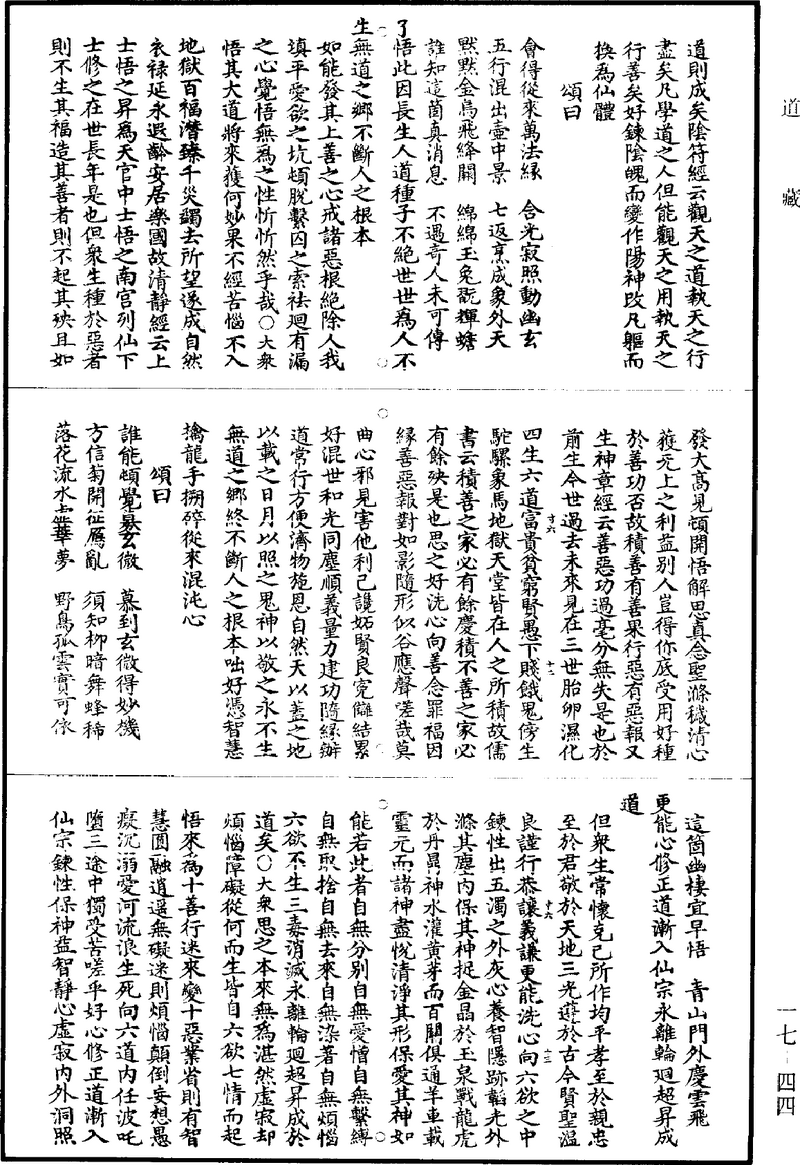 道藏
道則成矣陰符經云觀天之道執天之行
盡矣凡學道之人但能觀天之用執天之
行善矣好鍊陰魄而變作陽神改凡軀而
換為仙體
頌曰
會得從來萬法緣　合光寂照動幽玄
五行混出壺中景　七返烹成象外天
黙黙金烏飛絳闕　綿綿玉兔翫輝蟾
誰知這箇真消息　不遇奇人未可傳
了悟此因長生人道種子不絕世世為人不
生無道之鄉不斷人之根本
如能發其上善之心戒諸惡根絕除人我
填平愛欲之坑頓脫繫囚之索袪迴有漏
之心覺悟無為之性忻忻然乎哉○大衆
悟其大道將來獲何妙果不經苦惱不入
地獄百福潛臻千災蠲去所望遂成自然
衣祿延永遐齡安居樂國故清靜經云上
士悟之昇為天官中士悟之南宮列仙下
士修之在世長年是也但衆生種於惡者
則不生其福造其善者則不起其殃且如
發大高見頓開悟解思真念聖滌穢清心
獲无上之利益別人豈得你底受用好種
於善功否故積善有善果行惡有惡報又
生神章經云善惡功過毫分無失是也於
前生今世過去未來見在三世胎卵濕化
十六
十二
四生六道富貴貧窮賢愚下賤餓鬼傍生
駝騾象馬地獄天堂皆在人之所積故儒
書云積善之家必有餘慶積不善之家必
有餘殃是也思之好洗心向善念罪福因
緣善惡報對如影隨形似谷應聲嗟哉莫
曲心邪見害他利己讒妬賢良寃讎結累
好混世和光同塵順義量力建功隨緣辦
道常行方便濟物施恩自然天以蓋之地
以載之日月以照之鬼神以敬之永不生
無道之鄉終不斷人之根本咄好憑智慧
擒龍手搠碎從來混沌心
頌曰
誰能頓覺最玄微　慕到玄微得妙機
方信菊開征鴈亂　須知柳暗舞蜂稀
落花流水虛華夢　野鳥孤雲實可依
這箇幽棲宜早悟　青山門外慶雲飛
更能心修正道漸入仙宗永離輪迴超昇成
道
但衆生常懷克己所作均平孝至於親忠
至於君敬於天地三光遵於古今賢聖溫
良謹行恭讓義謙更能洗心向六欲之中
十六
十三
鍊性出五濁之外灰心養智隱跡韜光外
滌其塵內保其神捉金晶於玉泉戰龍虎
於丹扃神水灌黄芽而百關俱通羊車載
靈元而諸神盡悅清淨其形保愛其神如
能若此者自無分別自無愛憎自無繫縛
自無取捨自無去來自無染著自無煩惱
六欲不生三毒消滅永離輪迴超昇成於
道矣○大衆思之本來無為湛然虛寂却
煩惱障礙從何而生皆自六欲七情而起
悟來為十善行迷來變十惡業省則有智
慧圓融逍遥無礙迷則煩惱顛倒妄想愚
癡沉溺愛河流浪生死向六道內任波吒
墮三途中獨受苦嗟乎好心修正道漸入
仙宗鍊性保神益智靜心虛寂內外洞照
一七-四四